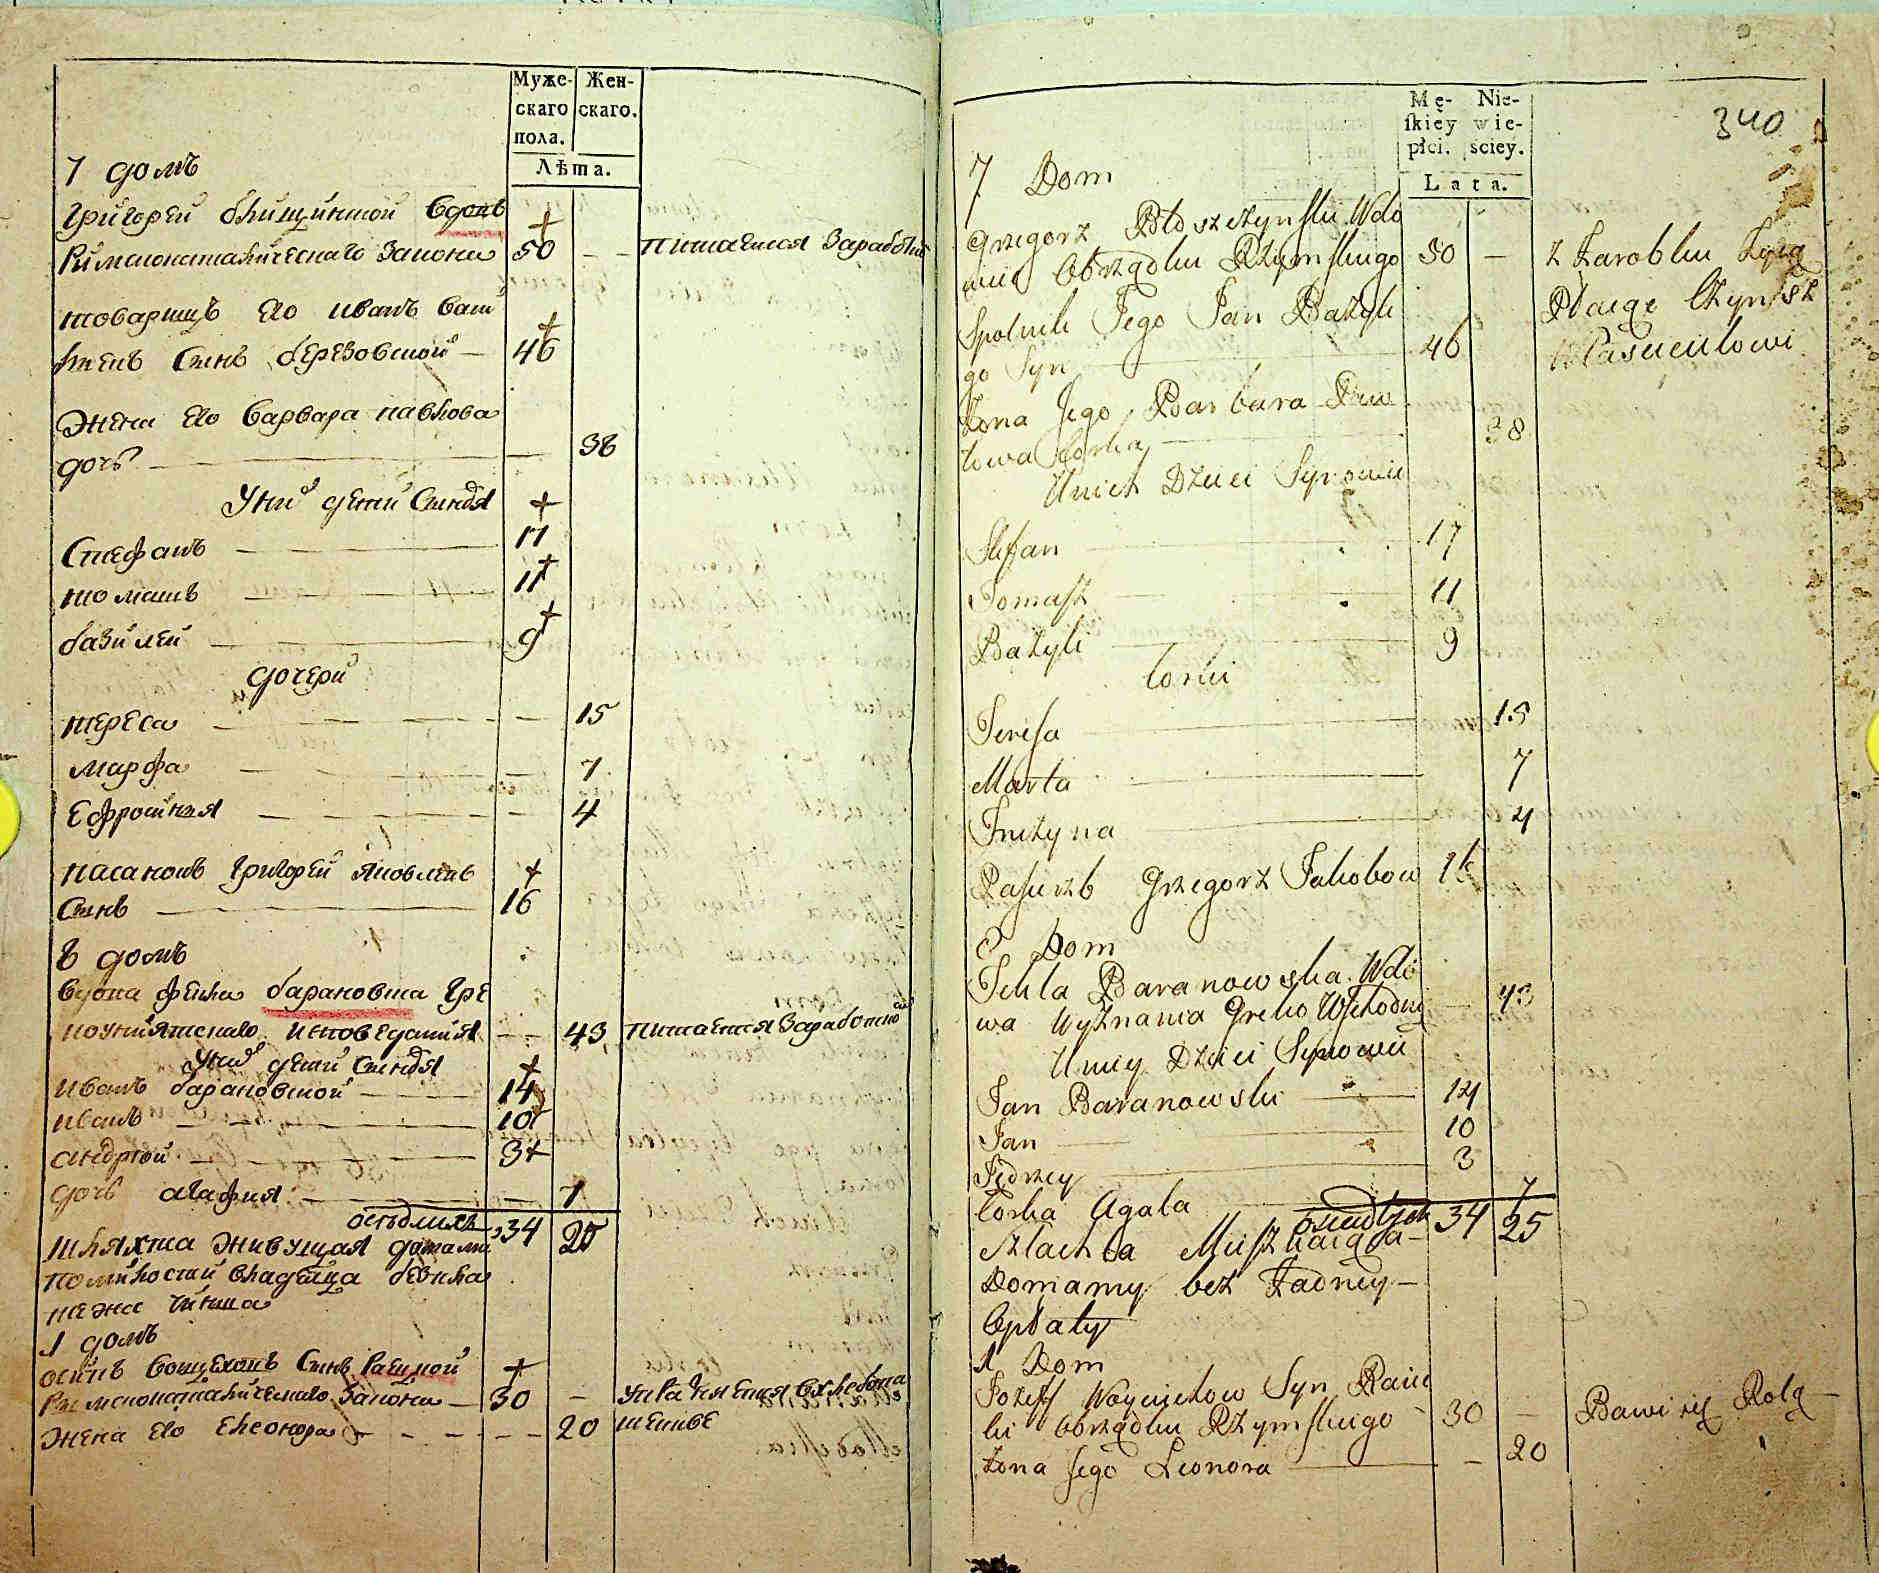 Муже-
скаго
пола.
Жен-
скаго.
Лѣта.
7 домъ
Григорей Блищинской вдовъ
Римскокаталическаго Закона 50 — — питаемся Заработко
товарищъ Его иванъ васи
льевъ Сынъ березовской — 46
Жена Его варвара павлова
дочь — 38
У них детей Сыновья
Стефанъ — 17
томашъ — 11
базилей — 9
дочери
тереса — 15
марфа — 7
Ефросиния — 4
пасанокъ Григорей яковлевъ
Сынъ — 16
8 домъ
вдова фекла барановска Гре
коуниятскаго исповедания — 43 питаемся Заработко
У ней детей Сыновья
иванъ барановской — 14
иванъ — 10
андрей — 3
дочь агафия — 7
оседлыхъ 34 25
шляхта Живущая домами
помилости владельца безвся
1 домъ
осипъ войцеховъ Сынъ
Римскокаталическаго Закона — 30 —
Жена Его Елеонора — 20
Mę-
skiey
płci.
Nie-
wie-
sciey.
Lata.
340
7 Dom
Grzegorz Błoszczynski Wdo
wiec Obrządku Rzymskiego 50 — z Zarobku Żyią
Spolnik Jego Jan Bazyli Płacąc Czynsz
go Syn — 46 Włascicielowi
Zona Jego Barbara Paw
łowa Corka — 38
U nich Dzieci Synowie
Stefan — 17
Tomasz — 11
Bazyli — 9
Corki
Teresa — 15
Marta — 7
Fruzyna — 4
Pasierzb Grzegorz Jakobow 16
8 Dom
Tekla Baranowska Wdo
wa Wyznania Greko Wschodnie — 43
U niey Dzieci Synowie
Jan Baranowski — 14
Jan — 10
Jędrzey — 3
Corka Agata — 7
Osiadłych 34 25
Szlachta Mieszkaiąca
Domamy bez Żadney —
Opłaty
1 Dom
Jozeff Woyciechow Syn
ki Obrządku Rzymskiego 30 — Bawi się Rolą —
Zona Jego Leonora — — 20